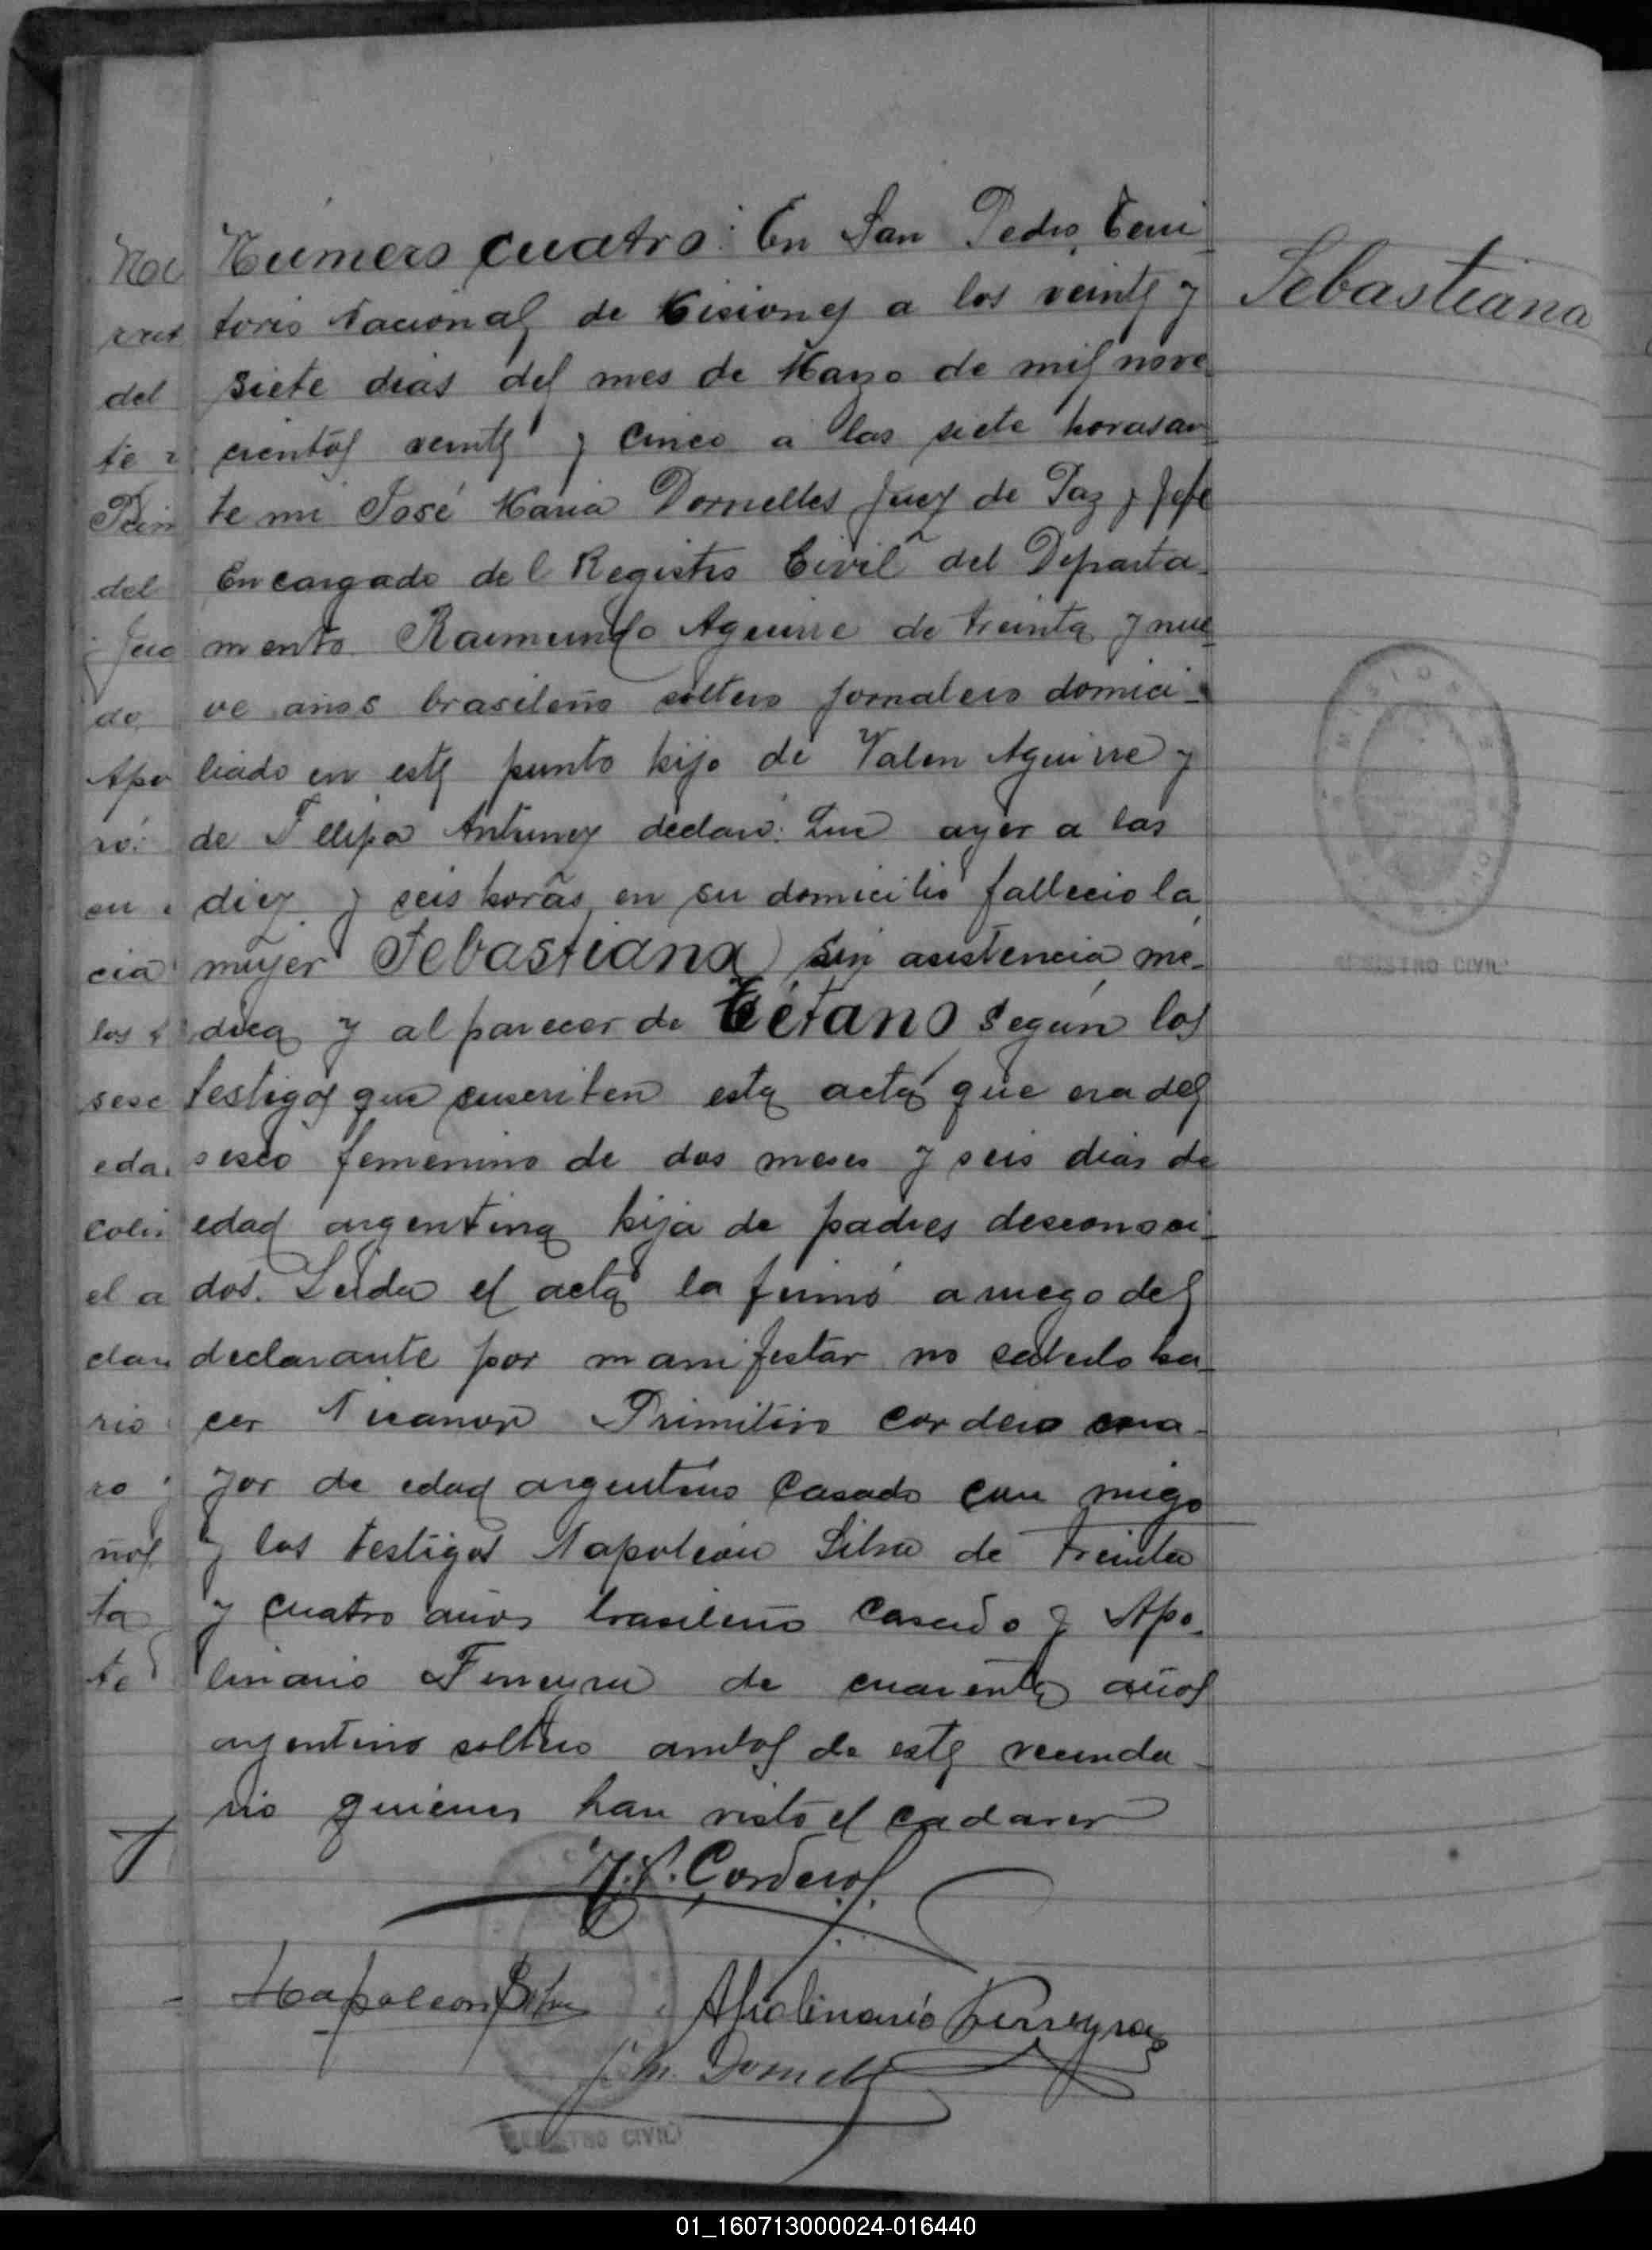 Número cuatro: En San Pedro, Terri
torio Nacional de Misiones a los veinte y
siete dias del mes de Marzo de mil nove
cientos veinte y cinco a las siete horas an
te mi José Maria Dornelles Juez de Paz y Jefe
Encargado del Registro Civil del Departa-
mento Raimundo Aguirre de treinta y nue
ve años brasileño soltero jornalero domici-
liado en este punto hijo de Valen Aguirre y
de Fellipa Antunez declaró: Que ayer a las
diez y seis horas, en su domicilio fallecio la
mujer Sebastiana sin asistencia mé-
dica y al parecer de Tétano según los
testigos que suscriben esta acta que era del
sesco femenino de dos meses y seis dias de
edad argentina hija de padres desconoci-
dos. Leida el acta la firmó a ruego del
declarante por manifestar no saberlo ha-
cer Nicanor Primitivo Cordero ma-
yor de edad argentino casado con migo
y los testigos Napoleón Silva de treinta
y cuatro años brasileño casado y Apo-
linario Ferreyra de cuarenta años
argentino soltero ambos de este vecinda-
rio quienes han visto el cadaver
Sebastiana
MISIONES
REGISTRO CIVIL
N. P. Cordero
Napoleon Silva Apolinario Ferreyra
J. M. Dornelles
REGISTRO CIVIL
Noc
del
te
del
do
Apo
ró:
en
cia
los
sesc
eda
el a
rio
ro
ños
ta
te
01_160713000024-016440